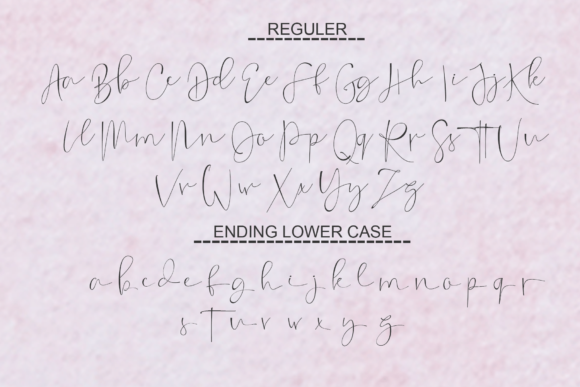 REGULER
Aa Bb Cc Dd Ee Ff Gg Hh Ii Jj Kk
Ll Mm Nn Oo Pp Qq Rr Ss Tt Uu
Vv Ww Xx Yy Zz
ENDING LOWER CASE
a b c d e f g h i j k l m n o p q r
s t u v w x y z